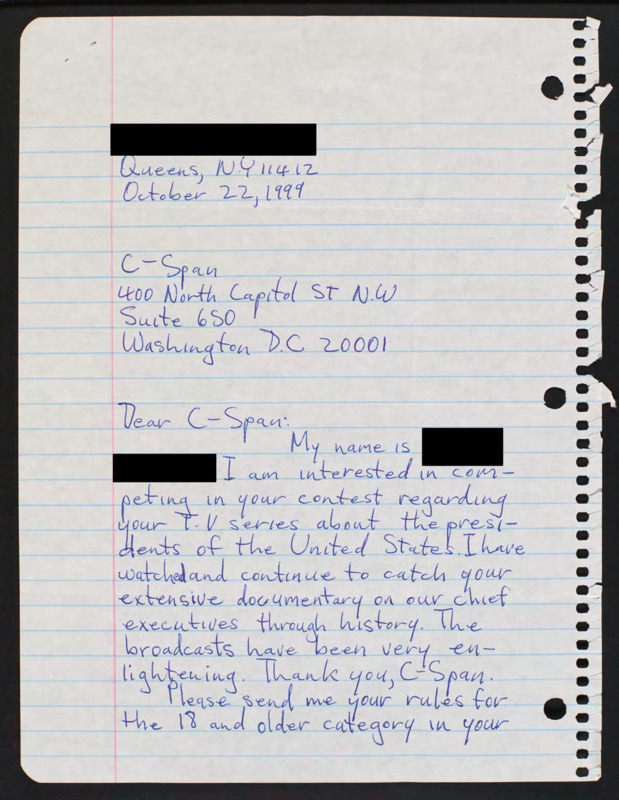 Queens, N.Y 11412
October 22, 1999
C-Span
400 North Capitol St N.W
Suite 650
Washington D.C 20001
Dear C-Span:
My name is
I am interested in com-
peting in your contest regarding
your T.V series about the presi-
dents of the United States. I have
watched and continue to catch your
extensive documentary on our chief
executives through history. The
broadcasts have been very en-
lightening. Thank you, C-Span.
Please send me your rules for
the 18 and older category in your